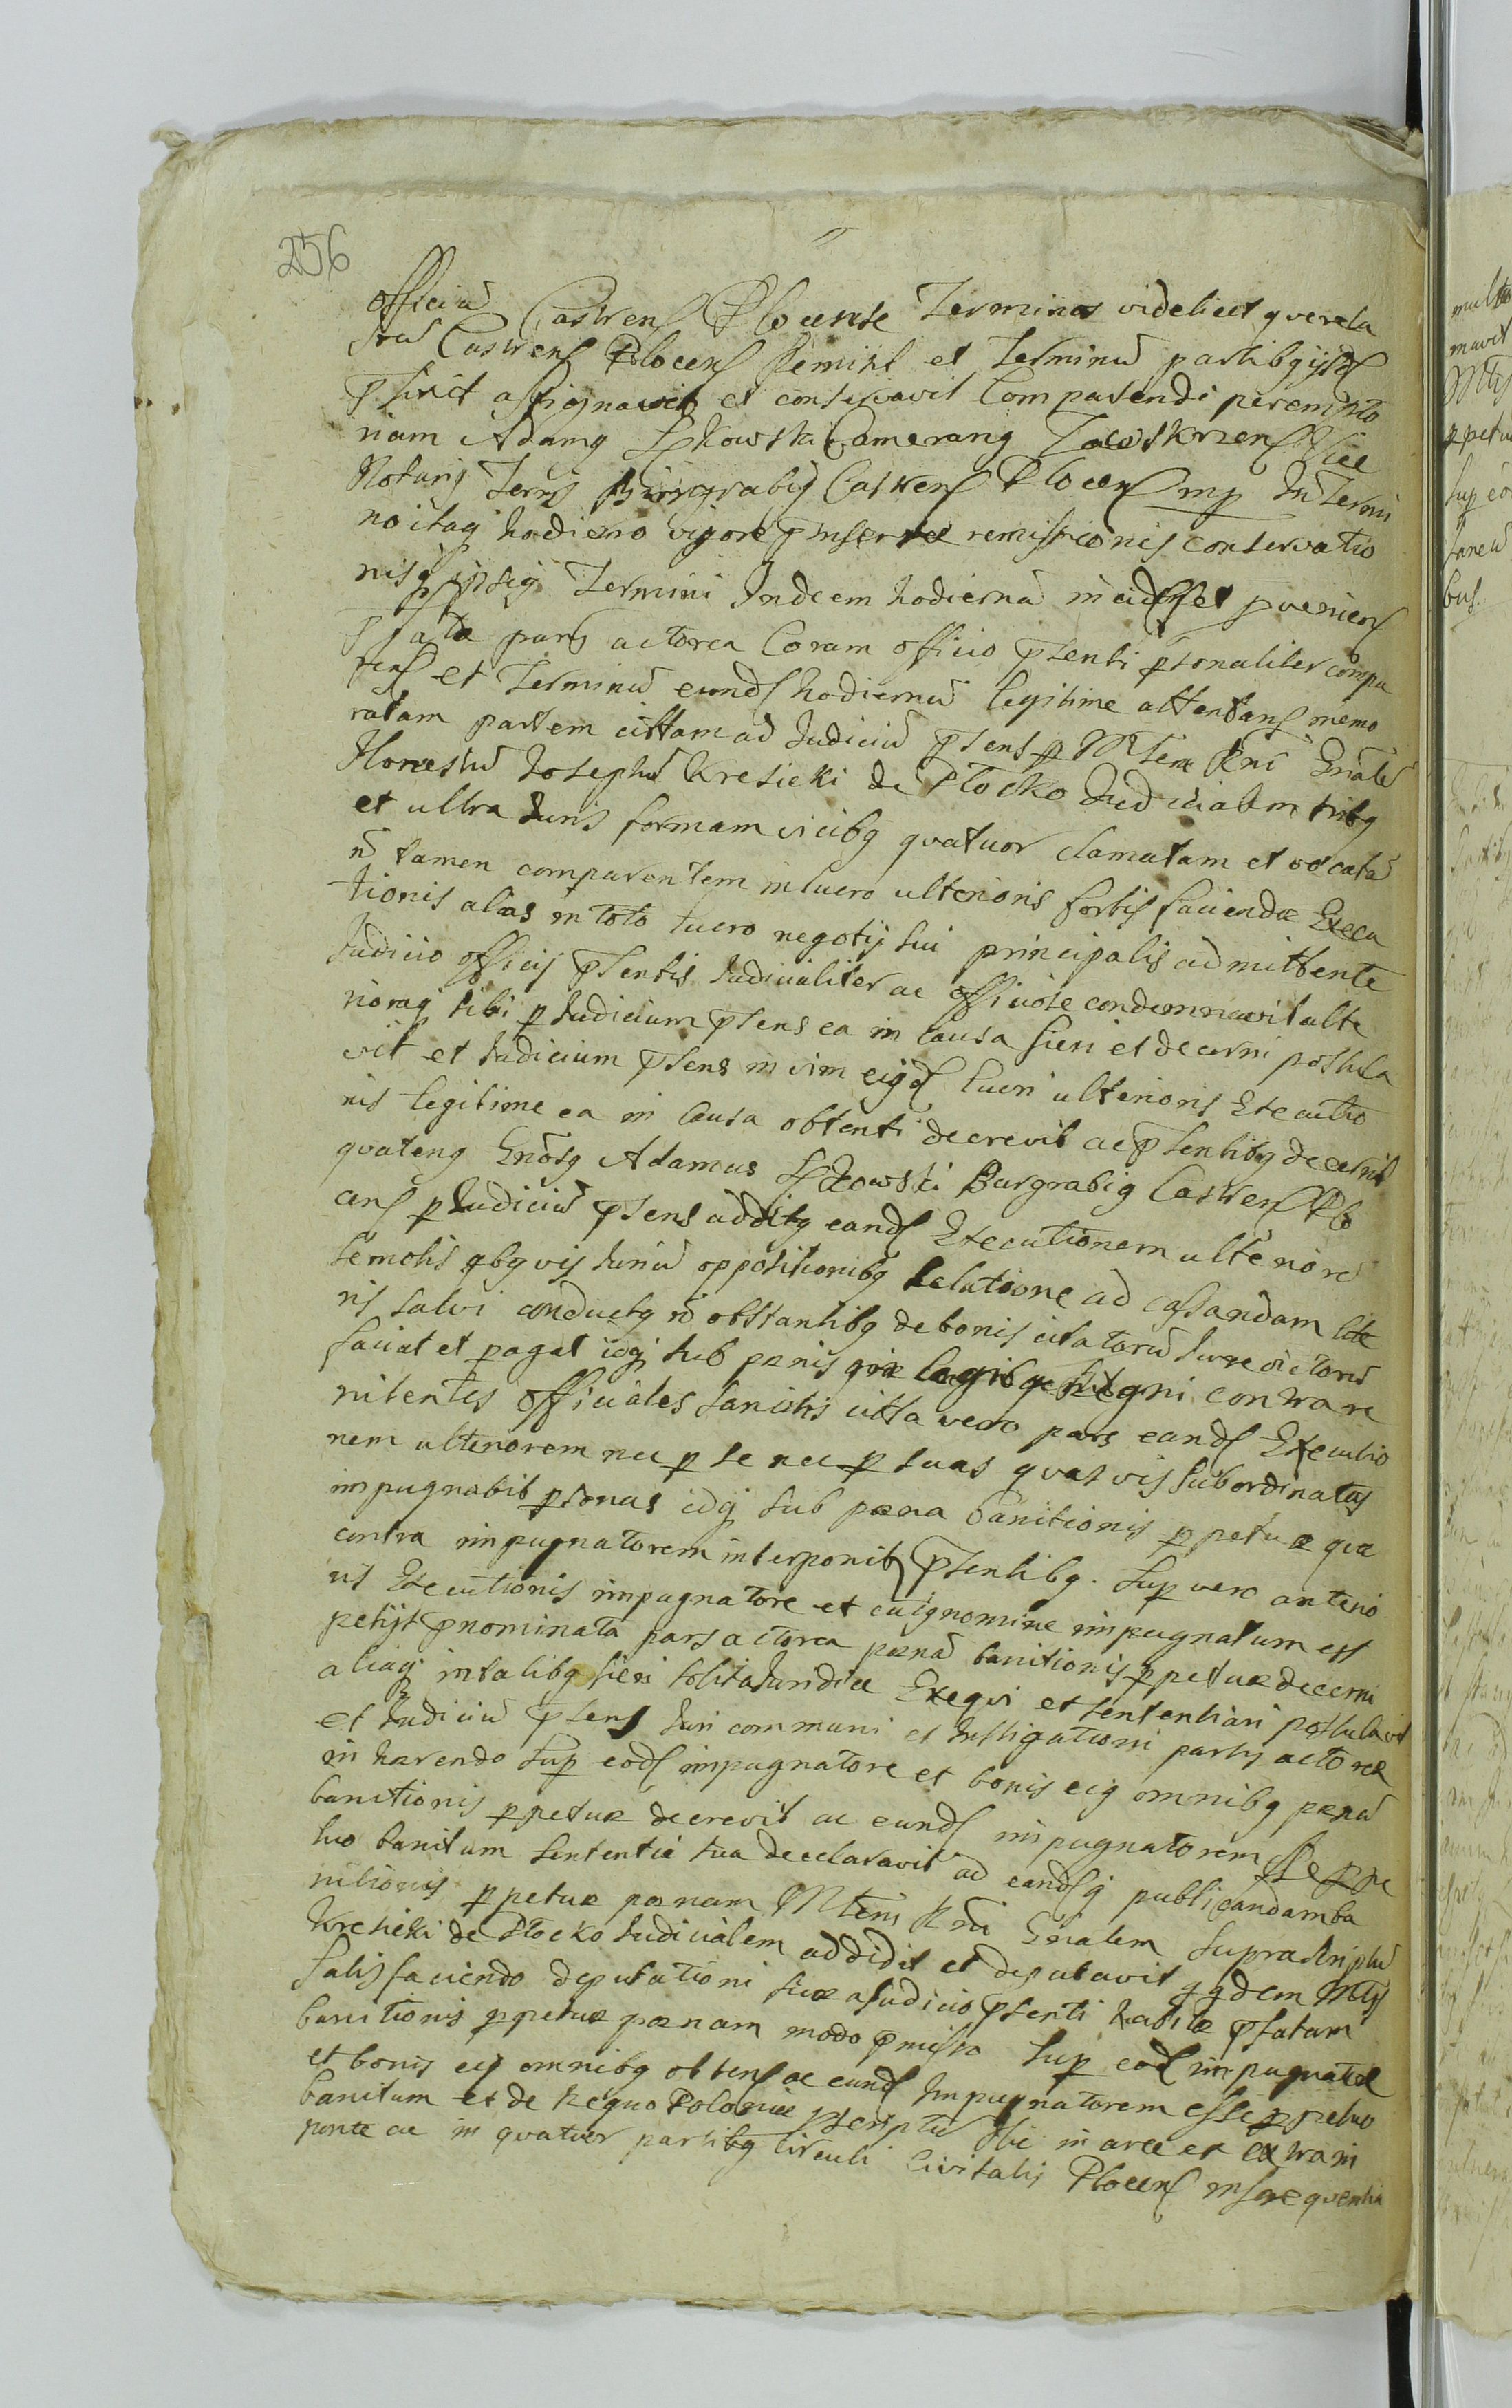 256
officiũ Castren Plocense Terminos videlicet querela
rũ Castren Plocen Remisit et Terminũ partibq ijsd
p̃fixit assignavit et conservavit Comparendi perempto
riam Adamq Camerarig Zawskrzen Vice
Notarig Terris Burgrabig Castren Plocen mp In Termi
no itaq hodierno vigore p̃inserta remissionis conservatio
nisq ipsig Termini Indiem hodiernã inciden et pvenien
p̃fata pars actorea Coram officio p̃senti psonaliter compa
ren et Terminũ eund hodiernũ legitime attentans memo
ratam partem citatam ad Judiciũ p̃sens p Mtrem Rni Gnalẽ
Honestũ Josephũ Kresicki de Plocko Judicialem tribq
et ultra Juris formam vicibq quatuor clamatam et vocatã
ñ tamen comparentem in lucro ulterioris fortis faciendæ Execu
tionis alias in toto lucro negotij sui principalis admittente
Judicio officij p̃sentis Judicialiter ac officiose condemnavit ulte
rioraq sibi p Judicium p̃sens ea in Causa fieri et decerni postula
vit et Judicium p̃sens in vim eigd lucri ulterioris Executio
nis legitime ea in Causa obtenti decrevit ac p̃sentibq decernit
quatenq Gnosg Adamus Burgrabig Castren Plo
cen p Judiciũ p̃sens additq eand Executionem ulteriorẽ
semotis qbqvis Juriũ oppositionibq Relatione ad cassandam lite
ris salvi conductq ñ obstantibq de bonis citatorũ Jure victorũ
faciat et pagat idq sub pænis legibq Regni contra re
nitentes officiales sancitis citta vero pars eand Executio
nem ulteriorem nec p se nec p suas quasvis subordinatas
impugnabit psonas idq sub pæna banitionis ppetuæ quæ
contra impugnatorem interponit p̃sentibq. Sup vero anterio
ris Executionis impugnatore et cuiq nomine impugnatum est
petijt p̃nominata pars actorea pænã banitionis ppetuæ decerni
aliaq in talibq fieri solita Juridice Exequi et sententiari postulavit
et Judiciũ p̃sens Juri communi et Instigationi partis actoreæ
in hærendo sup eod impugnatore et bonis eig omnibq pænã
banitionis ppetuæ decrevit ac eund impugnatorem Re ppe
tuo banitum sententia sua declaravit ad eandq publicandam ba
nitionis ppetuæ pænam Mtrem Rni Gnalem suprascriptũ
Kresicki de Plocko Judicialem addidit et deputavit qqdem Mtrs
satisfaciendo deputationi suæ a Judicio p̃senti habitæ p̃fatam
banitionis ppetuæ pænam modo p̃misso sup eod impugnatore
et bonis eig omnibq obten ac eund Impugnatorem esse ppetuo
banitum et de Regno Poloniæ pscriptũ hic in arce et extra in
ponte ac in quatuor partibq Circuli Civitatis Plocen insequentia